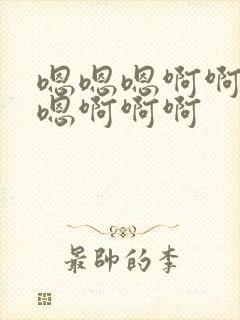 嗯嗯嗯啊啊
嗯啊啊啊
最帥的李